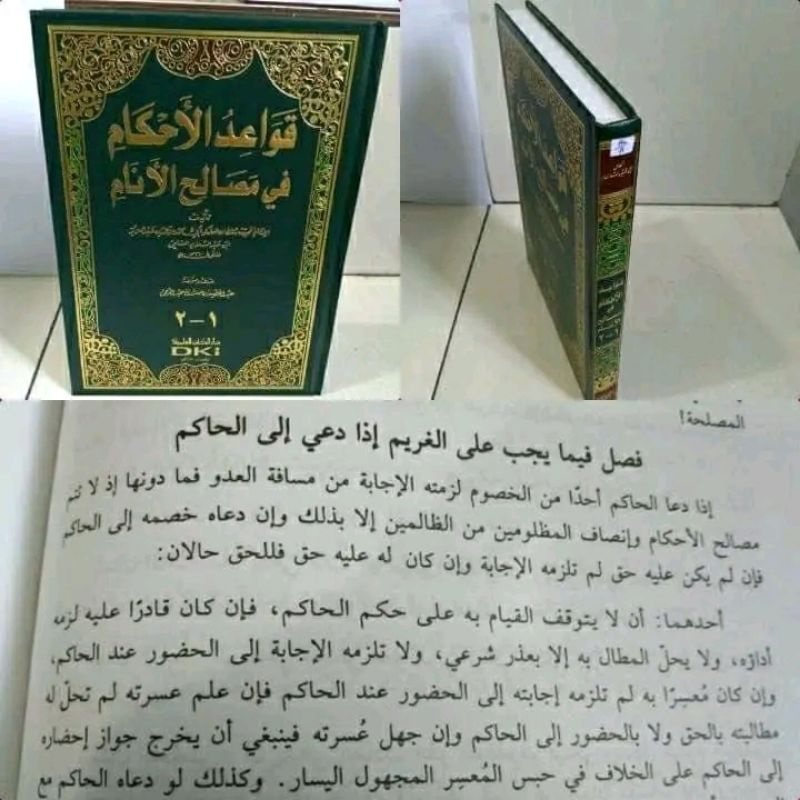 قواعد الأحكام
في مصالح الأنام
تأليف
١-٢
دار الكتب العلمية
DKi
١-٢
المصلحة!
فصل فيما يجب على الغريم إذا دعي إلى الحاكم
إذا دعا الحاكم أحدًا من الخصوم لزمته الإجابة من مسافة العدو فما دونها إذ لا تتم
مصالح الأحكام وإنصاف المظلومين من الظالمين إلا بذلك وإن دعاه خصمه إلى الحاكم
فإن لم يكن عليه حق لم تلزمه الإجابة وإن كان له عليه حق فللحق حالان:
أحدهما: أن لا يتوقف القيام به على حكم الحاكم، فإن كان قادرًا عليه لزمه
أداؤه، ولا يحلّ المطال به إلا بعذر شرعي، ولا تلزمه الإجابة إلى الحضور عند الحاكم،
وإن كان مُعسِرًا به لم تلزمه إجابته إلى الحضور عند الحاكم فإن علم عسرته لم تحلّ له
مطالبته بالحق ولا بالحضور إلى الحاكم وإن جهل عُسرته فينبغي أن يخرج جواز إحضاره
إلى الحاكم على الخلاف في حبس المُعسِر المجهول اليسار. وكذلك لو دعاه الحاكم مع